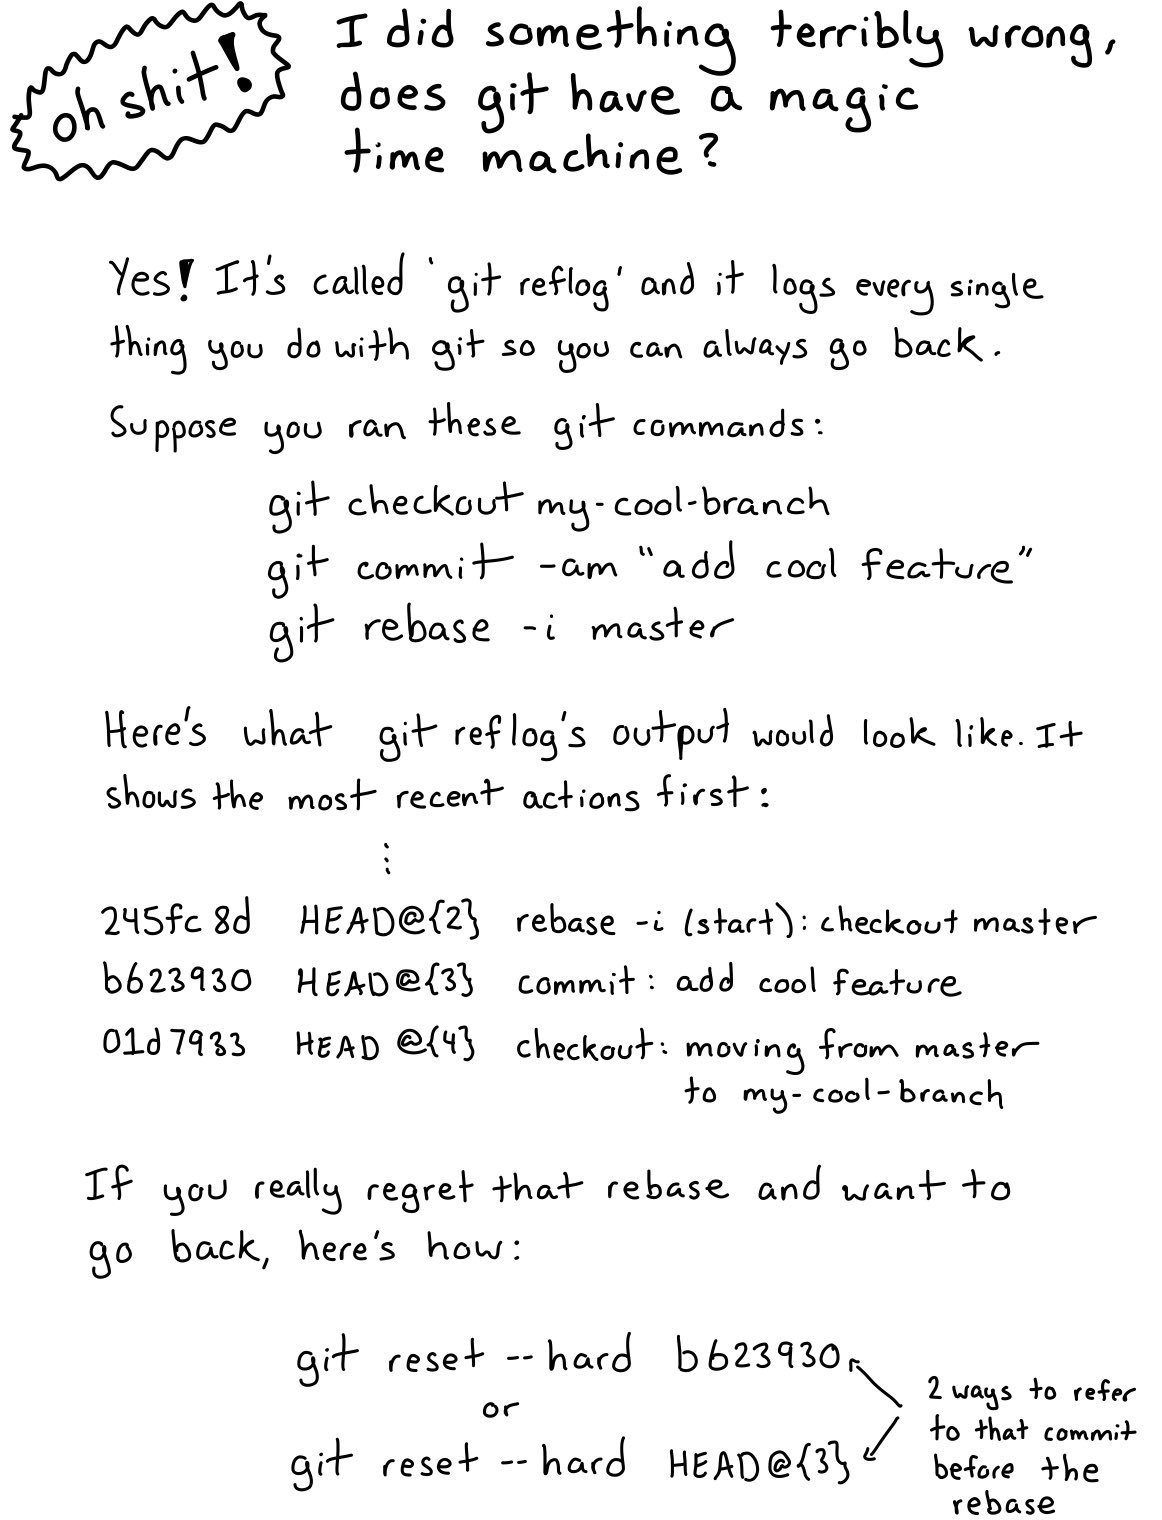 oh shit!
I did something terribly wrong,
does git have a magic
time machine?
Yes! It's called `git reflog' and it logs every single
thing you do with git so you can always go back.
Suppose you ran these git commands:
git checkout my-cool-branch
git commit -am "add cool feature"
git rebase -i master
Here's what git reflog's output would look like. It
shows the most recent actions first:
⋮
245fc8d HEAD@{2} rebase -i (start): checkout master
b623930 HEAD@{3} commit: add cool feature
01d7933 HEAD@{4} checkout: moving from master
to my-cool-branch
If you really regret that rebase and want to
go back, here's how:
git reset --hard b623930
or
git reset --hard HEAD@{3}
2 ways to refer
to that commit
before the
rebase